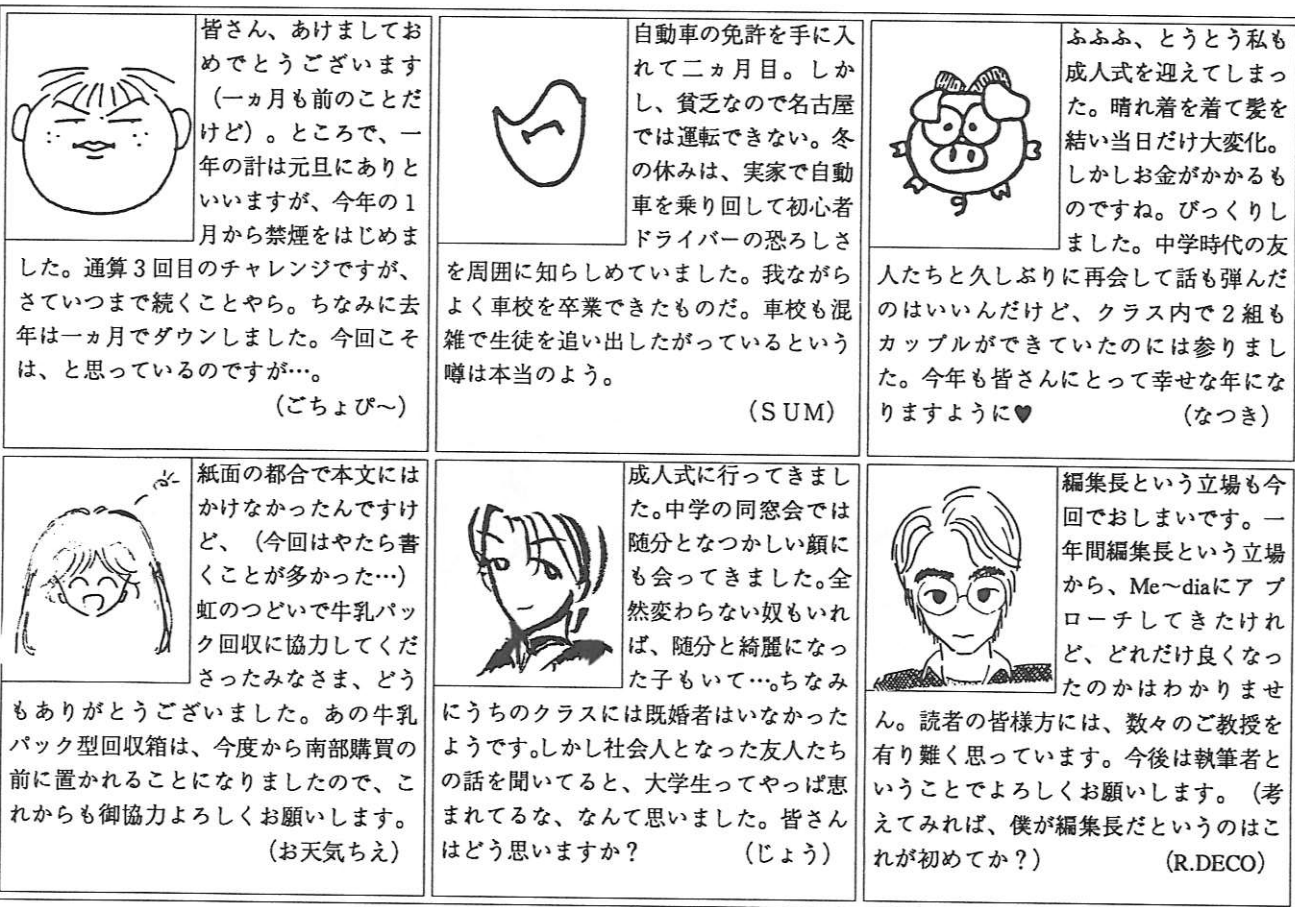 皆さん、あけましてお
めでとうございます
（一ヵ月も前のことだ
けど）。ところで、一
年の計は元旦にありと
いいますが、今年の１
月から禁煙をはじめま
した。通算３回目のチャレンジですが、
さていつまで続くことやら。ちなみに去
年は一ヵ月でダウンしました。今回こそ
は、と思っているのですが…。
（ごちょぴ～）
自動車の免許を手に入
れて二ヵ月目。しか
し、貧乏なので名古屋
では運転できない。冬
の休みは、実家で自動
車を乗り回して初心者
ドライバーの恐ろしさ
を周囲に知らしめていました。我ながら
よく車校を卒業できたものだ。車校も混
雑で生徒を追い出したがっているという
噂は本当のよう。
（ＳＵＭ）
ふふふ、とうとう私も
成人式を迎えてしまっ
た。晴れ着を着て髪を
結い当日だけ大変化。
しかしお金がかかるも
のですね。びっくりし
ました。中学時代の友
人たちと久しぶりに再会して話も弾んだ
のはいいんだけど、クラス内で２組も
カップルができていたのには参りまし
た。今年も皆さんにとって幸せな年にな
りますように♥　（なつき）
紙面の都合で本文には
かけなかったんですけ
ど、（今回はやたら書
くことが多かった…）
虹のつどいで牛乳パッ
ク回収に協力してくだ
さったみなさま、どう
もありがとうございました。あの牛乳
パック型回収箱は、今度から南部購買の
前に置かれることになりましたので、こ
れからも御協力よろしくお願いします。
（お天気ちえ）
成人式に行ってきまし
た。中学の同窓会では
随分となつかしい顔に
も会ってきました。全
然変わらない奴もいれ
ば、随分と綺麗になっ
た子もいて…。ちなみ
にうちのクラスには既婚者はいなかった
ようです。しかし社会人となった友人たち
の話を聞いてると、大学生ってやっぱ恵
まれてるな、なんて思いました。皆さん
はどう思いますか？　（じょう）
編集長という立場も今
回でおしまいです。一
年間編集長という立場
から、Me～diaにア プ
ローチしてきたけれ
ど、どれだけ良くなっ
たのかはわかりませ
ん。読者の皆様方には、数々のご教授を
有り難く思っています。今後は執筆者と
いうことでよろしくお願いします。（考
えてみれば、僕が編集長だというのはこ
れが初めてか？）　（R.DECO）